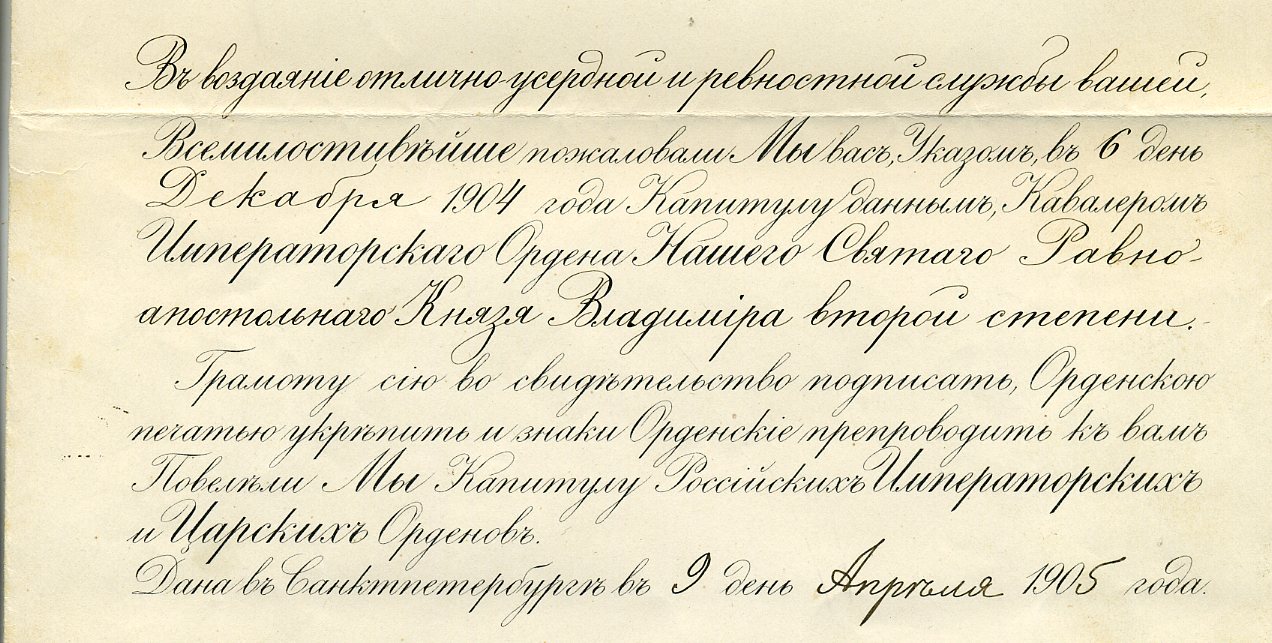 Въ воздаяніе отлично усердной и ревностной службы вашей,
Всемилостивѣйше пожаловали Мы васъ, Указомъ, въ 6 день
Декабря 1904 года Капитулу даннымъ, Кавалеромъ
Императорскаго Ордена Нашего Святаго Равно-
апостольнаго Князя Владиміра второй степени.
Грамоту сію во свидѣтельство подписать, Орденскою
печатью укрѣпить и знаки Орденскіе препроводить къ вамъ
Повелѣли Мы Капитулу Россійскихъ Императорскихъ
и Царскихъ Орденовъ.
Дана въ Санктпетербургѣ въ 9 день Апрѣля 1905 года.